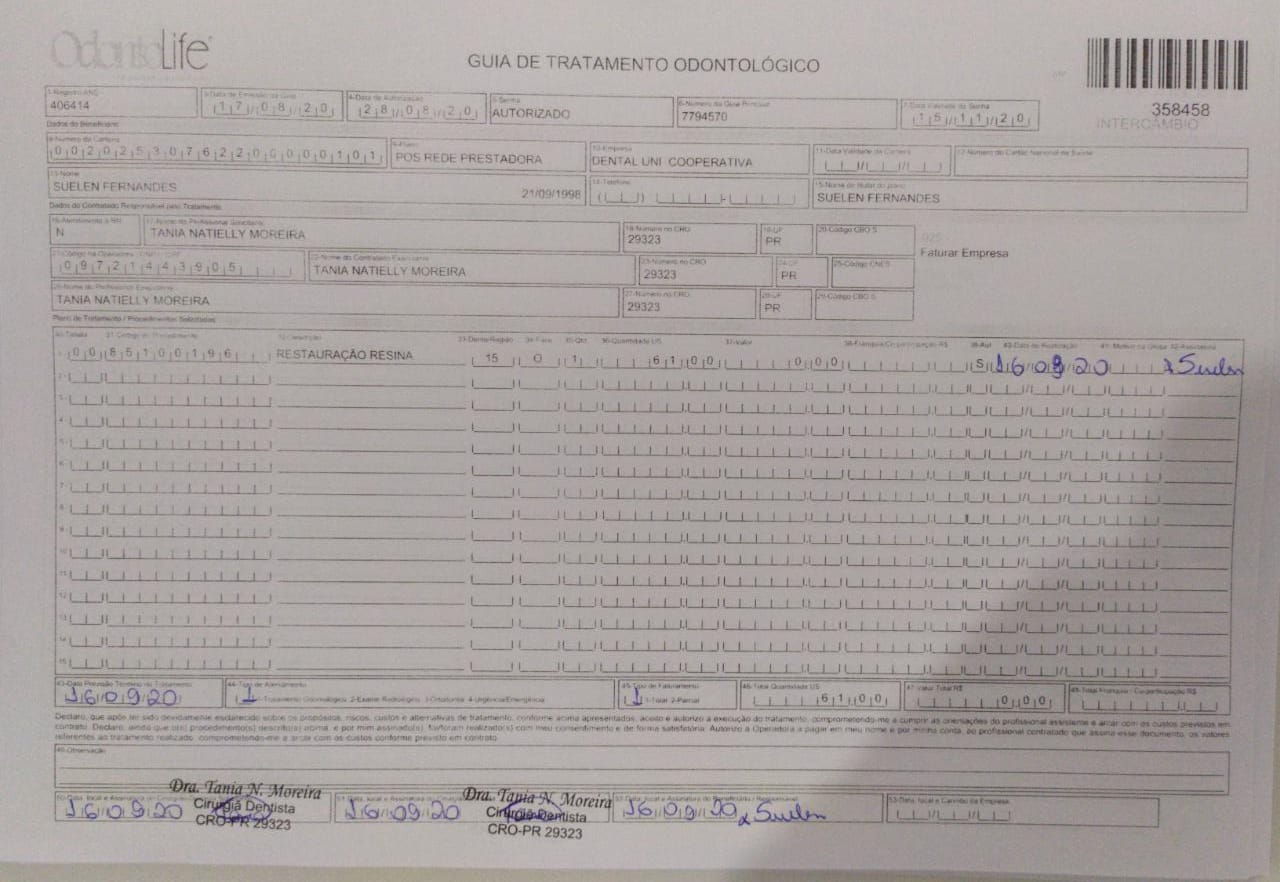 OdontoLife
GUIA DE TRATAMENTO ODONTOLÓGICO
358458
INTERCÂMBIO
1-Registro ANS
406414
3-Data de Emissão da Guia
17/08/20
4-Data de Autorização
28/08/20
5-Senha
AUTORIZADO
6-Número da Guia Principal
7794570
7-Data Validade da Senha
15/11/20
Dados do Beneficiário
8-Número da Carteira
00202530762200000101
9-Plano
POS REDE PRESTADORA
10-Empresa
DENTAL UNI COOPERATIVA
11-Data Validade da Carteira
12-Número do Cartão Nacional de Saúde
13-Nome
SUELEN FERNANDES
21/09/1998
14-Telefone
15-Nome do titular do plano
SUELEN FERNANDES
Dados do Contratado Responsável pelo Tratamento
16-Atendimento a RN
N
17-Nome do Profissional Solicitante
TANIA NATIELLY MOREIRA
18-Número no CRO
29323
19-UF
PR
20-Código CBO S
025
Faturar Empresa
21-Código na Operadora / CNPJ / CPF
09721443905
22-Nome do Contratado Executante
TANIA NATIELLY MOREIRA
23-Número no CRO
29323
24-UF
PR
25-Código CNES
26-Nome do Profissional Executante
TANIA NATIELLY MOREIRA
27-Número no CRO
29323
28-UF
PR
29-Código CBO S
Plano de Tratamento / Procedimentos Solicitados
30-Tabela 31-Código do Procedimento 32-Descrição 33-Dente/Região 34-Face 35-Qtd 36-Quantidade US 37-Valor 38-Franquia/Co-participação R$ 39-Aut 40-Data de Realização 41-Motivo da Glosa 42-Assinatura
1- 00 85100196 RESTAURAÇÃO RESINA 15 O 1 61,00 0,00 S 16/09/20 Suelen
2-
3-
4-
5-
6-
7-
8-
9-
10
11
12
13
14
15
43-Data Previsão Término do Tratamento
16/09/20
44-Tipo de Atendimento
1 1-Tratamento Odontológico 2-Exame Radiológico 3-Ortodontia 4-Urgência/Emergência
45-Tipo de Faturamento
1 1-Total 2-Parcial
46-Total Quantidade US
61,00
47-Valor Total R$
0,00
48-Total Franquia / Co-participação R$
Declaro, que após ter sido devidamente esclarecido sobre os propósitos, riscos, custos e alternativas de tratamento, conforme acima apresentados, aceito e autorizo a execução do tratamento, comprometendo-me a cumprir as orientações do profissional assistente e arcar com os custos previstos em
contrato. Declaro, ainda que o(s) procedimento(s) descrito(s) acima, e por mim assinado(s), foi/foram realizado(s) com meu consentimento e de forma satisfatória. Autorizo a Operadora a pagar em meu nome e por minha conta, ao profissional contratado que assina esse documento, os valores
referentes ao tratamento realizado, comprometendo-me a arcar com os custos conforme previsto em contrato.
49-Observação
50-Data, local e Assinatura do
16/09/20
Dra. Tania N. Moreira
Cirurgiã Dentista
CRO-PR 29323
51-Data, local e Assinatura do
16/09/20
Dra. Tania N. Moreira
Cirurgiã Dentista
CRO-PR 29323
52-Data, local e Assinatura do Beneficiário / Responsável
16/09/20 Suelen
53-Data, local e Carimbo da Empresa